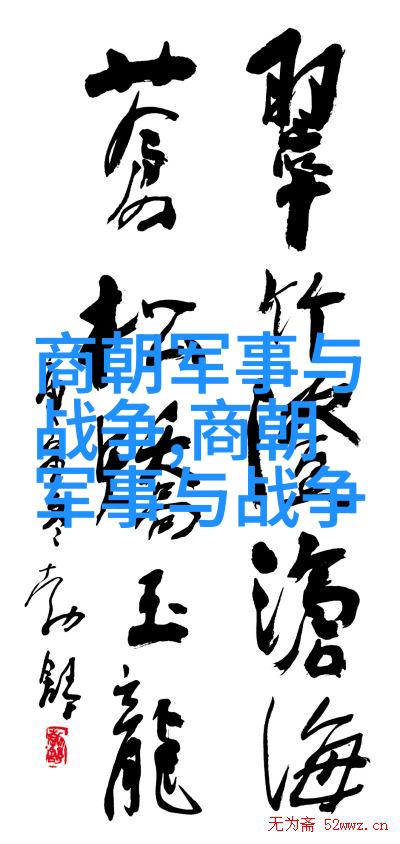 翠竹滄海
蒼松玉龍
商朝军事与
战争,商朝
军事与战争
无为斋 52wwz.cn